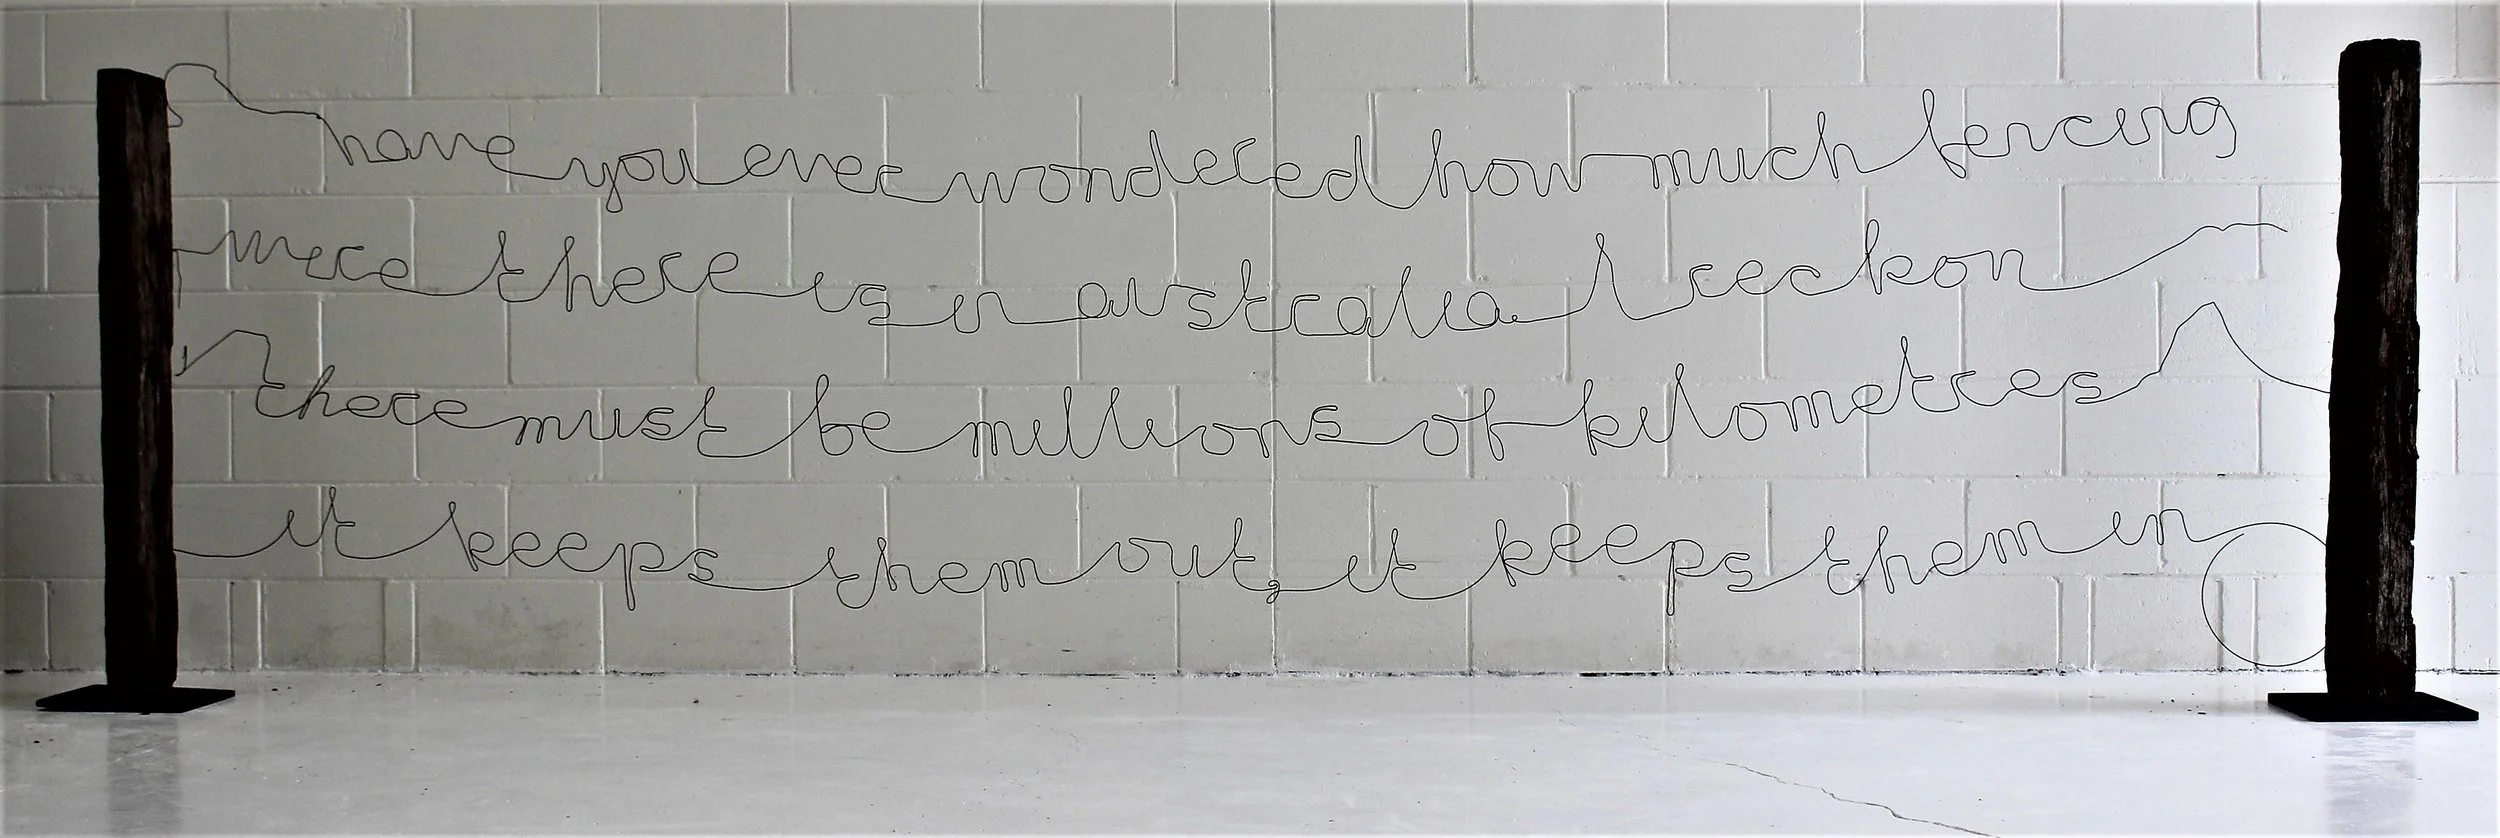 have you ever wondered how much fencing
wire there is in australia I reckon
there must be millions of kilometres
it keeps them out, it keeps them in